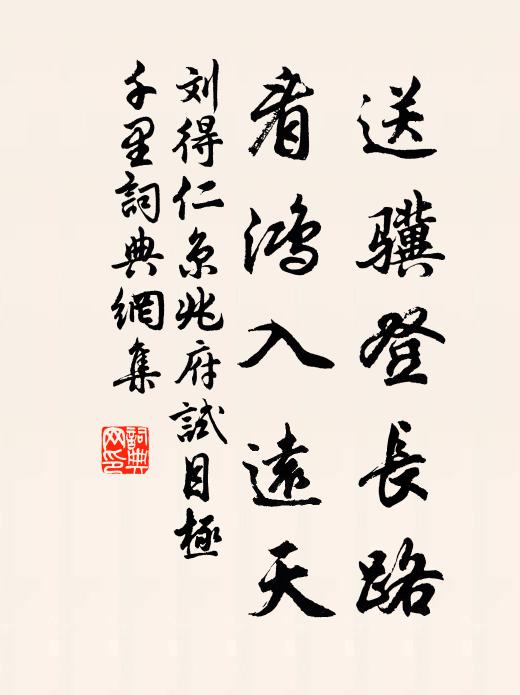 送骥登長路
看鴻入遠天
刘得仁京兆府試目極
千里詞典網集
詞典网印